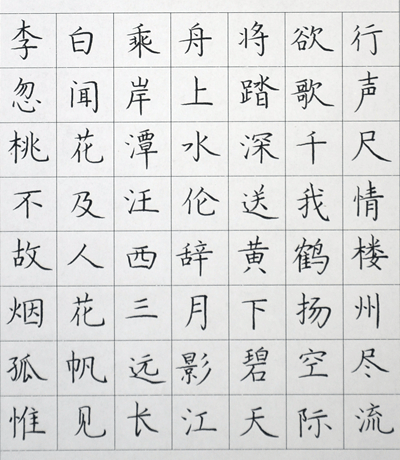 李白乘舟将欲行
忽闻岸上踏歌声
桃花潭水深千尺
不及汪伦送我情
故人西辞黄鹤楼
烟花三月下扬州
孤帆远影碧空尽
惟见长江天际流